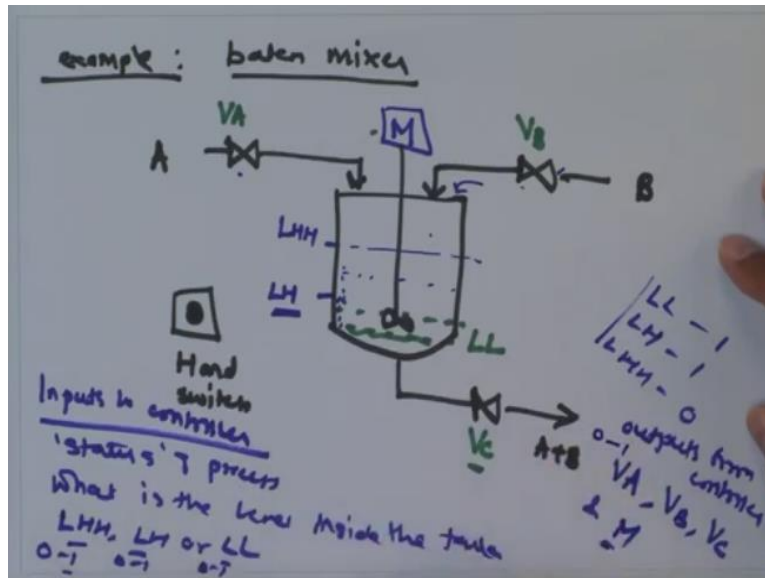 example : batch mixer
VA
M
VB
A
B
LHH
LH
LL
Hand
switch
Vc
A+B
LL - 1
LH - 1
LHH - 0
Inputs to controller
'status' of process
What is the level inside the tank
LHH, LH or LL
0-1 0-1 0-1
outputs from
0-1 controller
VA, VB, Vc
& M